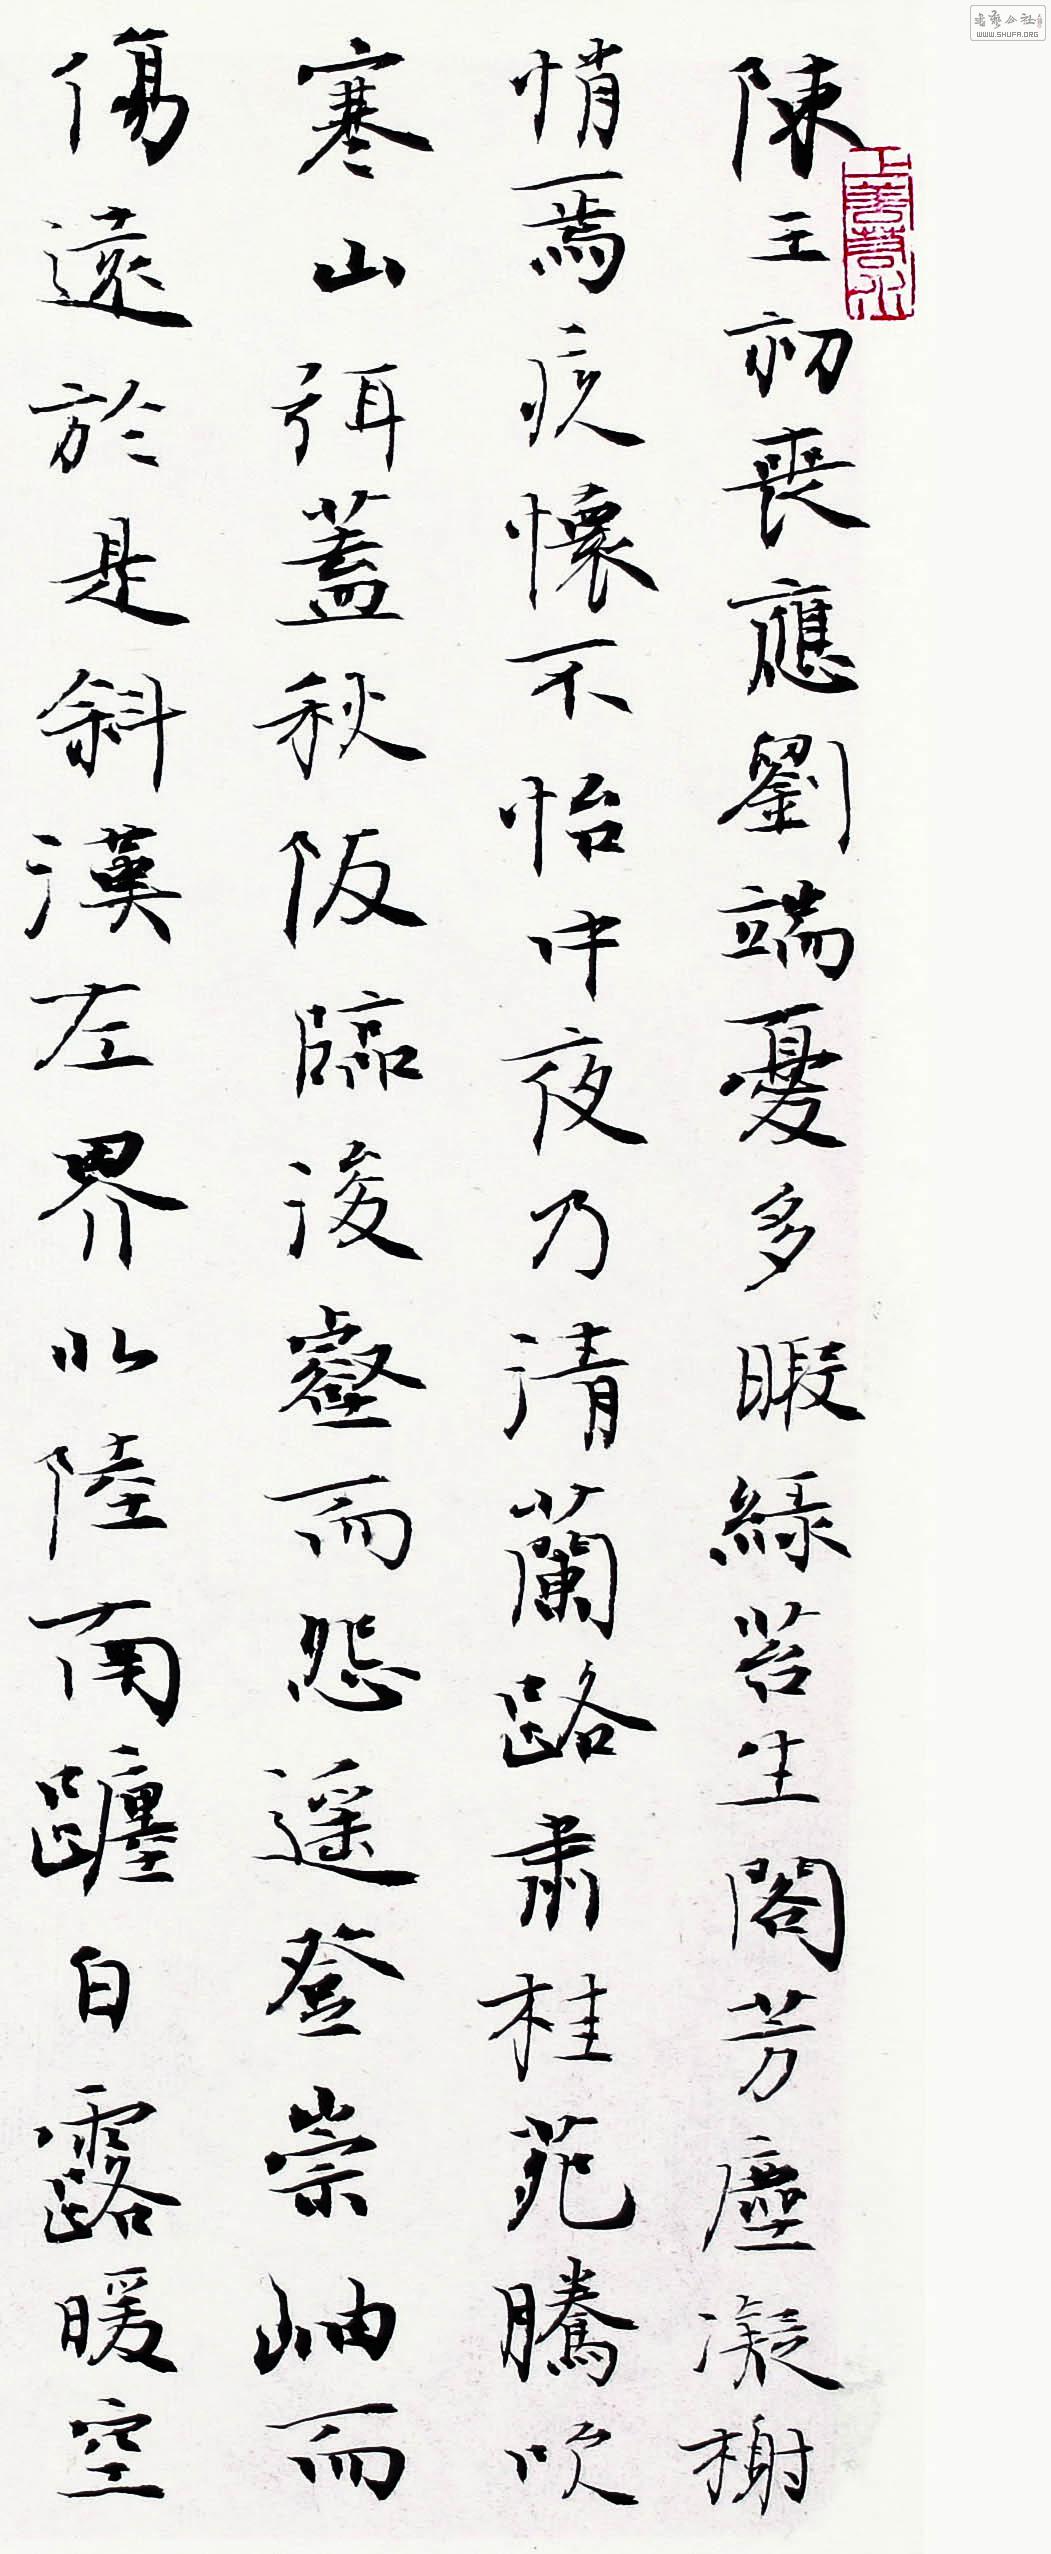 陳王初喪應劉端憂多暇綠苔生閣芳塵凝榭
悄焉疚懷不怡中夜乃清蘭路肅桂苑騰吹
寒山弭蓋秋阪臨浚壑而怨遥登崇岫而
傷遠於是斜漢左界北陸南躔白露曖空
上善若水
WWW.SHUFA.ORG